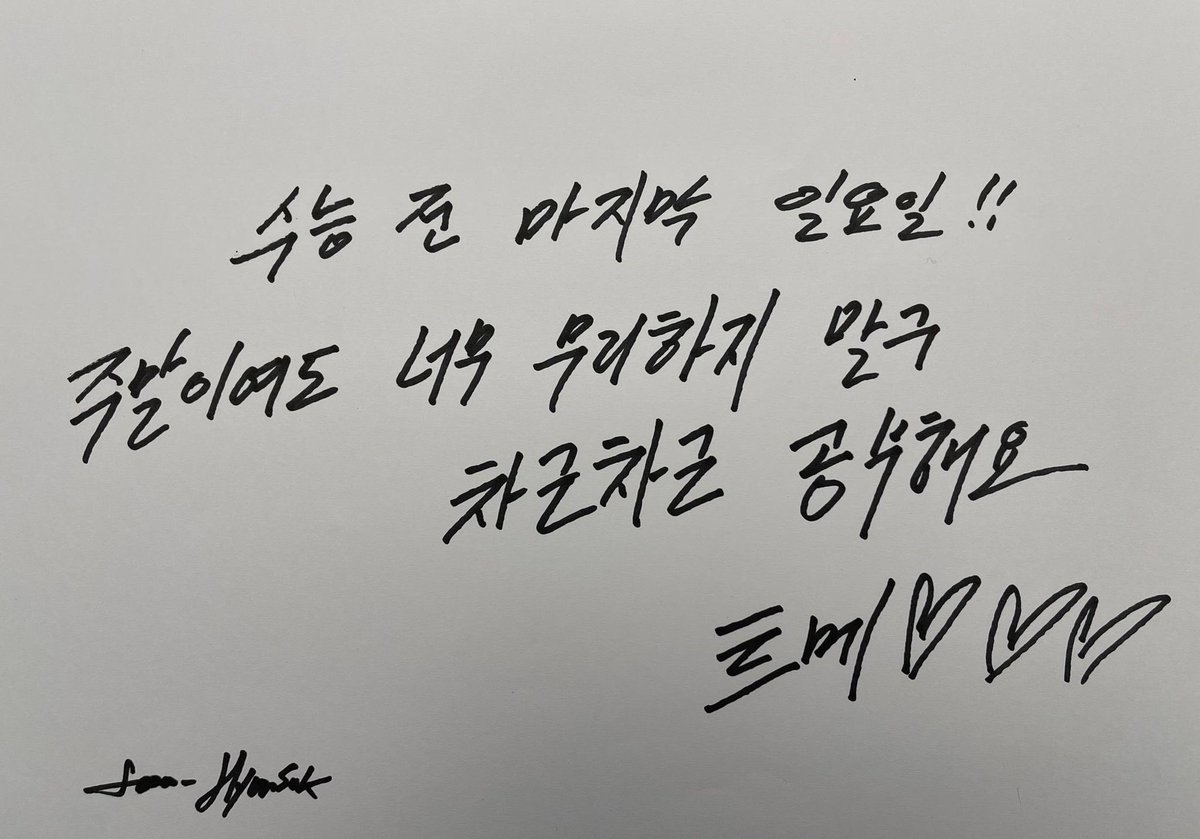 수능 전 마지막 일요일!!
주말이여도 너무 무리하지 말구
차근차근 공부해요
트메♡♡♡